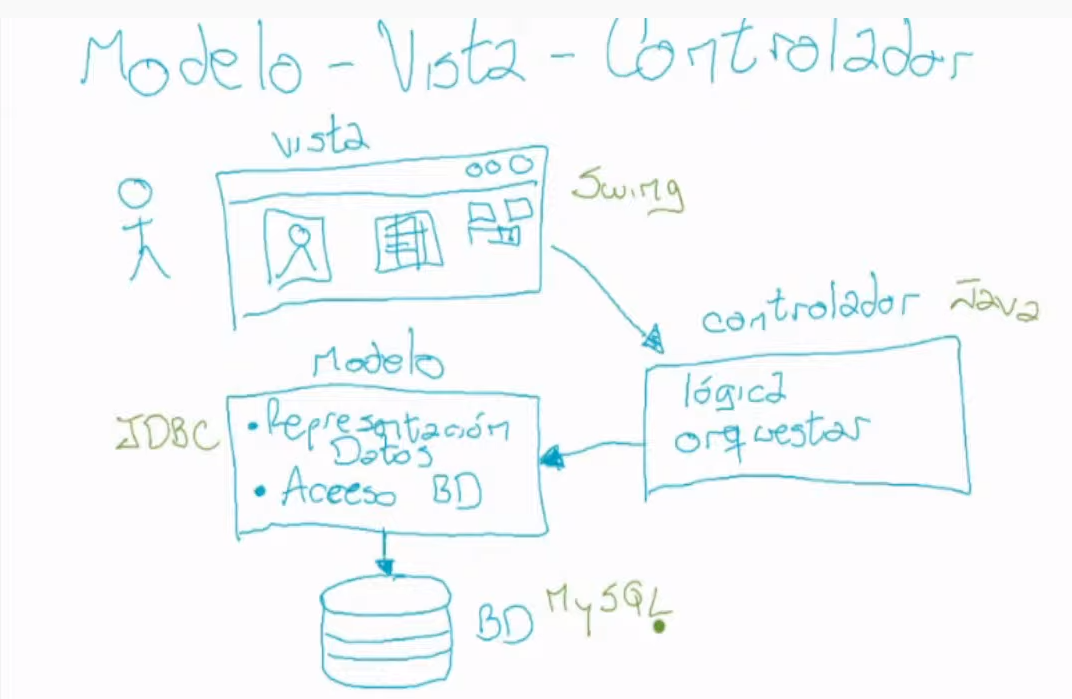 Modelo - Vista - Controlador
Vista
Swing
controlador Java
lógica
orquestar
Modelo
JDBC
• Representación
Datos
• Aceeso BD
BD MySQL